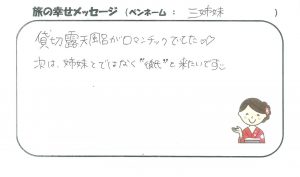 旅の幸せメッセージ （ペンネーム： 三姉妹 ）
貸切露天風呂がロマンチックでした♡
次は、姉妹とではなく"彼氏"と来たいです。